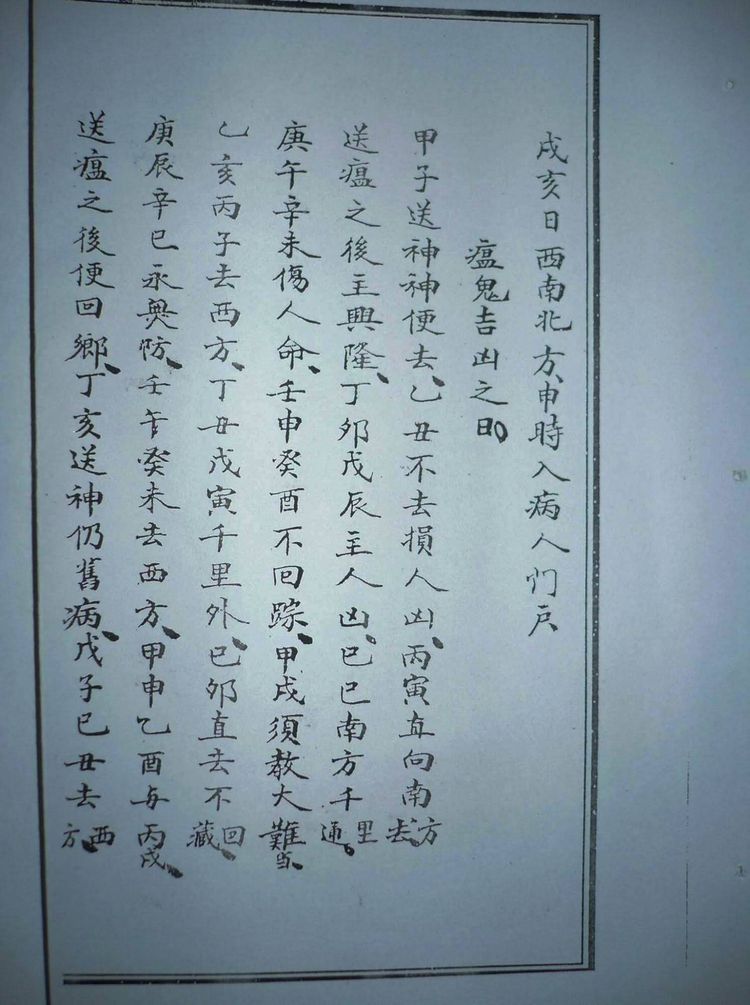 戌亥日西南北方、申時入病人们户
瘟鬼吉凶之日
甲子送神神便去、乙丑不去損人凶、丙寅直向南方去、
送瘟之後主興隆、丁夘戊辰主人凶、巳巳南方千里通、
庚午辛未傷人命、壬申癸酉不回踪、甲戌須教大難当、
乙亥丙子去西方、丁丑戊寅千里外、巳夘直去不回藏、
庚辰辛巳永無防、壬午癸未去西方、甲申乙酉与丙戌、
送瘟之後便回鄉、丁亥送神仍舊病、戊子巳丑去西方、